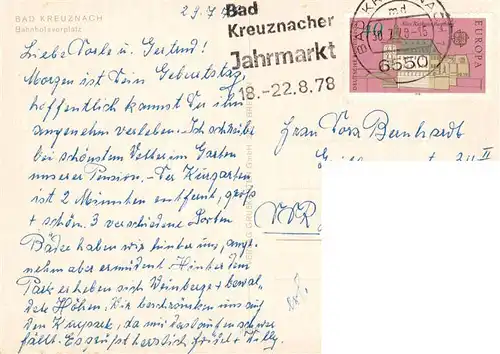 BAD KREUZNACH
Bahnhofsvorplatz
29.7.
Bad
Kreuznacher
Jahrmarkt
18.-22.8.78
6550
EUROPA
Liebe und Gertrud!
Morgen ist Dein Geburtstag,
hoffentlich kannst Du ihn
angenehm verleben. Ich schreibe
bei schönstem Wetter im Garten
unserer Pension. Der Kurgarten
ist 2 Minuten entfernt, groß
+ schön. 3 verschiedene Sorten
Bäder haben wir hinter uns, ange-
nehm aber ermüdend. Hinter dem
Park erheben sich Weinberge + bewal-
dete Höhen. Wir beschränken uns auf
den Kurpark, da mir das Laufen schwer
fällt. Es grüßt herzlich Friedel + Willy.
Frau Dora Bernhardt
II